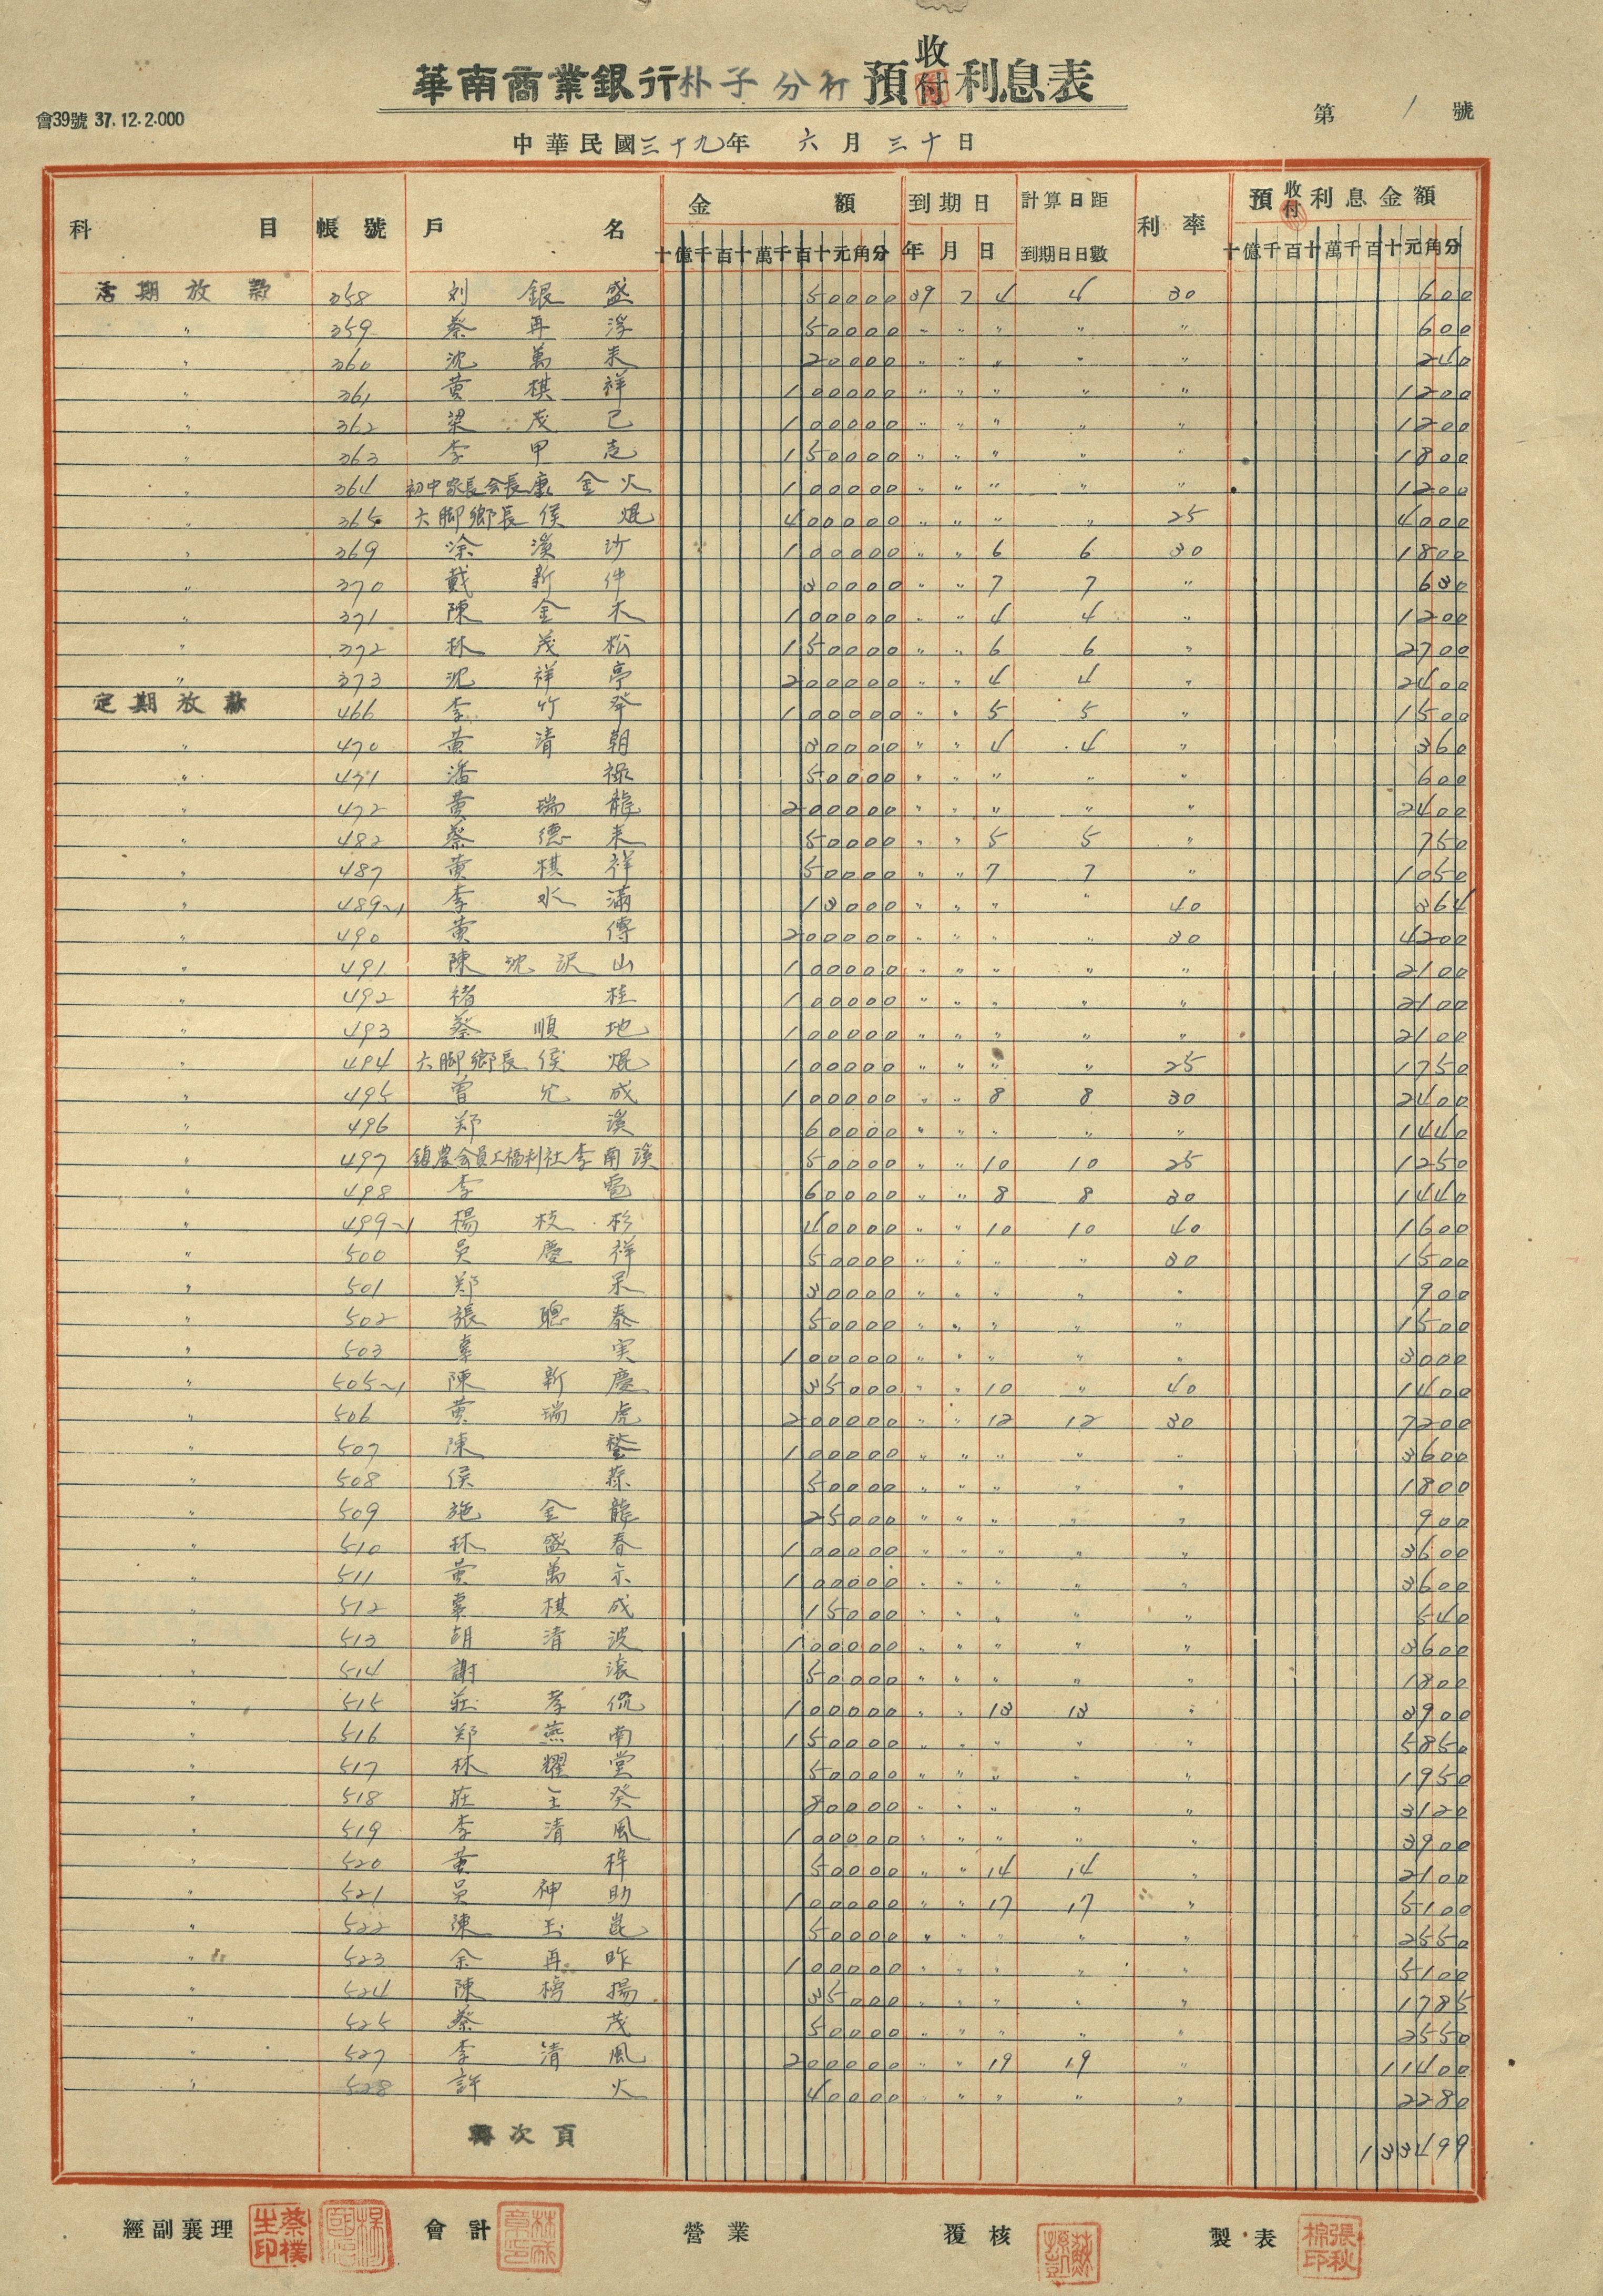 華南商業銀行朴子分行 預收付利息表
會39號 37.12.2.000
第 1 號
中華民國三十九年 六月三十日
科目 帳號 戶名 金額 到期日 計算日距 利率 預收付利息金額
十億千百十萬千百十元角分 年 月 日 到期日日數 十億千百十萬千百十元角分
活期放款 358 刘銀盛 50000 39 7 4 4 30 600
〃 359 蔡再浮 50000 〃 〃 〃 〃 〃 600
〃 360 沈萬来 20000 〃 〃 〃 〃 〃 240
〃 361 黄棋祥 100000 〃 〃 〃 〃 〃 1200
〃 362 梁茂已 100000 〃 〃 〃 〃 〃 1200
〃 363 李甲 150000 〃 〃 〃 〃 〃 1800
〃 364 初中家長会長康金火 100000 〃 〃 〃 〃 〃 1200
〃 365 六脚鄉長侯焜 400000 〃 〃 〃 〃 25 4000
〃 369 涂漢沙 100000 〃 〃 6 6 30 1800
〃 370 戴新件 30000 〃 〃 7 7 〃 630
〃 371 陳金木 100000 〃 〃 4 4 〃 1200
〃 372 林茂松 150000 〃 〃 6 6 〃 2700
〃 373 沈祥亭 200000 〃 〃 4 4 〃 2400
定期放款 466 李竹 100000 〃 〃 5 5 〃 1500
〃 470 黄清朝 30000 〃 〃 4 4 〃 360
〃 471 潘祿 50000 〃 〃 〃 〃 〃 600
〃 472 黄瑞龍 200000 〃 〃 〃 〃 〃 2400
〃 482 蔡德来 50000 〃 〃 5 5 〃 750
〃 487 黄棋祥 50000 〃 〃 7 7 〃 1050
〃 489~1 李水滿 13000 〃 〃 〃 〃 40 364
〃 490 黄傳 200000 〃 〃 〃 〃 30 4200
〃 491 陳沈沢山 100000 〃 〃 〃 〃 〃 2100
〃 492 褚桂 100000 〃 〃 〃 〃 〃 2100
〃 493 蔡順地 100000 〃 〃 〃 〃 〃 2100
〃 494 六脚鄉長侯焜 100000 〃 〃 〃 〃 25 1750
〃 495 曾允成 100000 〃 〃 8 8 30 2400
〃 496 郑溪 60000 〃 〃 〃 〃 〃 1440
〃 497 鎮農会員工福利社李南溪 50000 〃 〃 10 10 25 1250
〃 498 李 60000 〃 〃 8 8 30 1440
〃 499~1 楊枝杉 40000 〃 〃 10 10 40 1600
〃 500 吳慶祥 50000 〃 〃 〃 〃 30 1500
〃 501 郑呆 30000 〃 〃 〃 〃 〃 900
〃 502 張聰泰 50000 〃 〃 〃 〃 〃 1500
〃 503 辜実 100000 〃 〃 〃 〃 〃 3000
〃 505~1 陳新慶 35000 〃 〃 10 〃 40 1400
〃 506 黄瑞虎 200000 〃 〃 12 12 30 7200
〃 507 陳 100000 〃 〃 〃 〃 〃 3600
〃 508 侯 50000 〃 〃 〃 〃 〃 1800
〃 509 施金龍 25000 〃 〃 〃 〃 〃 900
〃 510 林盛春 100000 〃 〃 〃 〃 〃 3600
〃 511 黄萬 100000 〃 〃 〃 〃 〃 3600
〃 512 辜棋成 15000 〃 〃 〃 〃 〃 540
〃 513 胡清波 100000 〃 〃 〃 〃 〃 3600
〃 514 謝滚 50000 〃 〃 〃 〃 〃 1800
〃 515 莊孝侃 100000 〃 〃 13 13 〃 3900
〃 516 郑燕南 150000 〃 〃 〃 〃 〃 5850
〃 517 林耀堂 50000 〃 〃 〃 〃 〃 1950
〃 518 莊壬癸 80000 〃 〃 〃 〃 〃 3120
〃 519 李清風 100000 〃 〃 〃 〃 〃 3900
〃 520 黄梓 50000 〃 〃 14 14 〃 2100
〃 521 吳神助 100000 〃 〃 17 17 〃 5100
〃 522 陳玉崑 50000 〃 〃 〃 〃 〃 2550
〃 523 余再昨 100000 〃 〃 〃 〃 〃 5100
〃 524 陳榜揚 35000 〃 〃 〃 〃 〃 1785
〃 525 蔡茂 50000 〃 〃 〃 〃 〃 2550
〃 527 李清風 200000 〃 〃 19 19 〃 11400
〃 528 許火 40000 〃 〃 〃 〃 〃 2280
轉次頁 133499
經副襄理 蔡樸生印 會計 營業 覆核 製表 張秋棉印